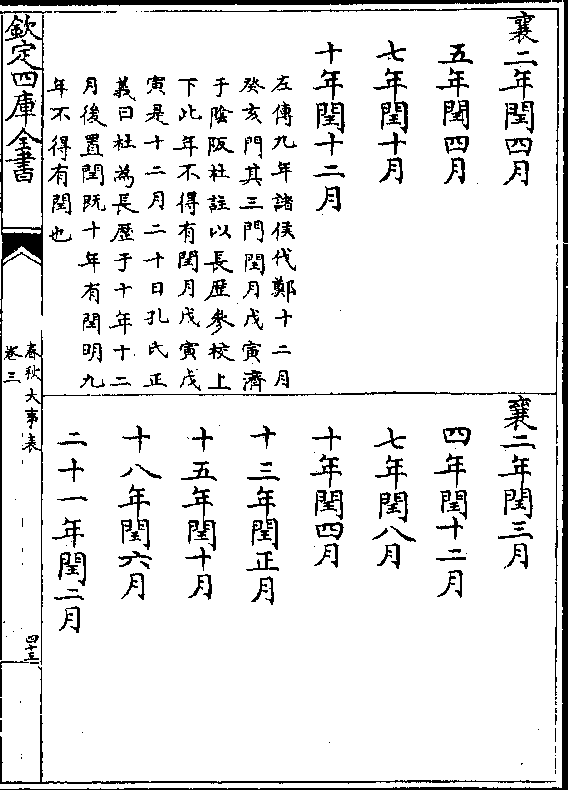 襄二年閏四月
五年閏四月
七年閏十月
十年閏十二月
左傳九年諸侯伐鄭十二月
癸亥門其三門閏月戊寅濟
于陰阪杜註以長歴參校上
下此年不得有閏月戊寅戊
寅是十二月二十日孔氏正
義曰杜為長歴于十年十二
月後置閏既十年有閏明九
年不得有閏也
襄二年閏三月
四年閏十二月
七年閏八月
十年閏四月
十三年閏正月
十五年閏十月
十八年閏六月
二十一年閏二月
欽定四庫全書
春秋大事表
卷三
四十三